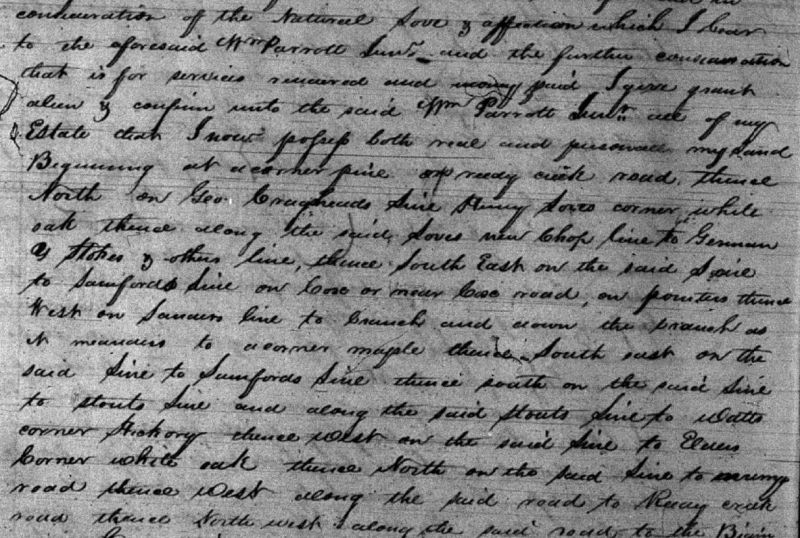 consideration of the Natural Love & affection which I bear
to the aforesaid Wm Parrott Junr. and the further consideration
that is for services rendered and money paid I give grant
alien & confirm unto the said Wm Parrott Junr. all of my
Estate that I now possess both real and personal my Land
Beginning at a corner pine on reedy creek road, thence
North on Geo Cragheads Line Henry Loves corner, white
oak thence along the said Loves new Chop line to German
Y Stokes & others line, thence South East on the said Line
to Samfords Line on Coxe or near Coxe road, on pointers thence
West on Sanders line to branch and down the branch as
it meanders to a corner maple thence South east on the
said Line to Samfords Line thence south on the said Line
to Stouts Line and along the said Stouts Line to Watts
corner Hickory thence West on the said Line to
Corner white oak thence North on the said Line to
road thence West along the said road to Reedy creek
road thence North west along the said road to the